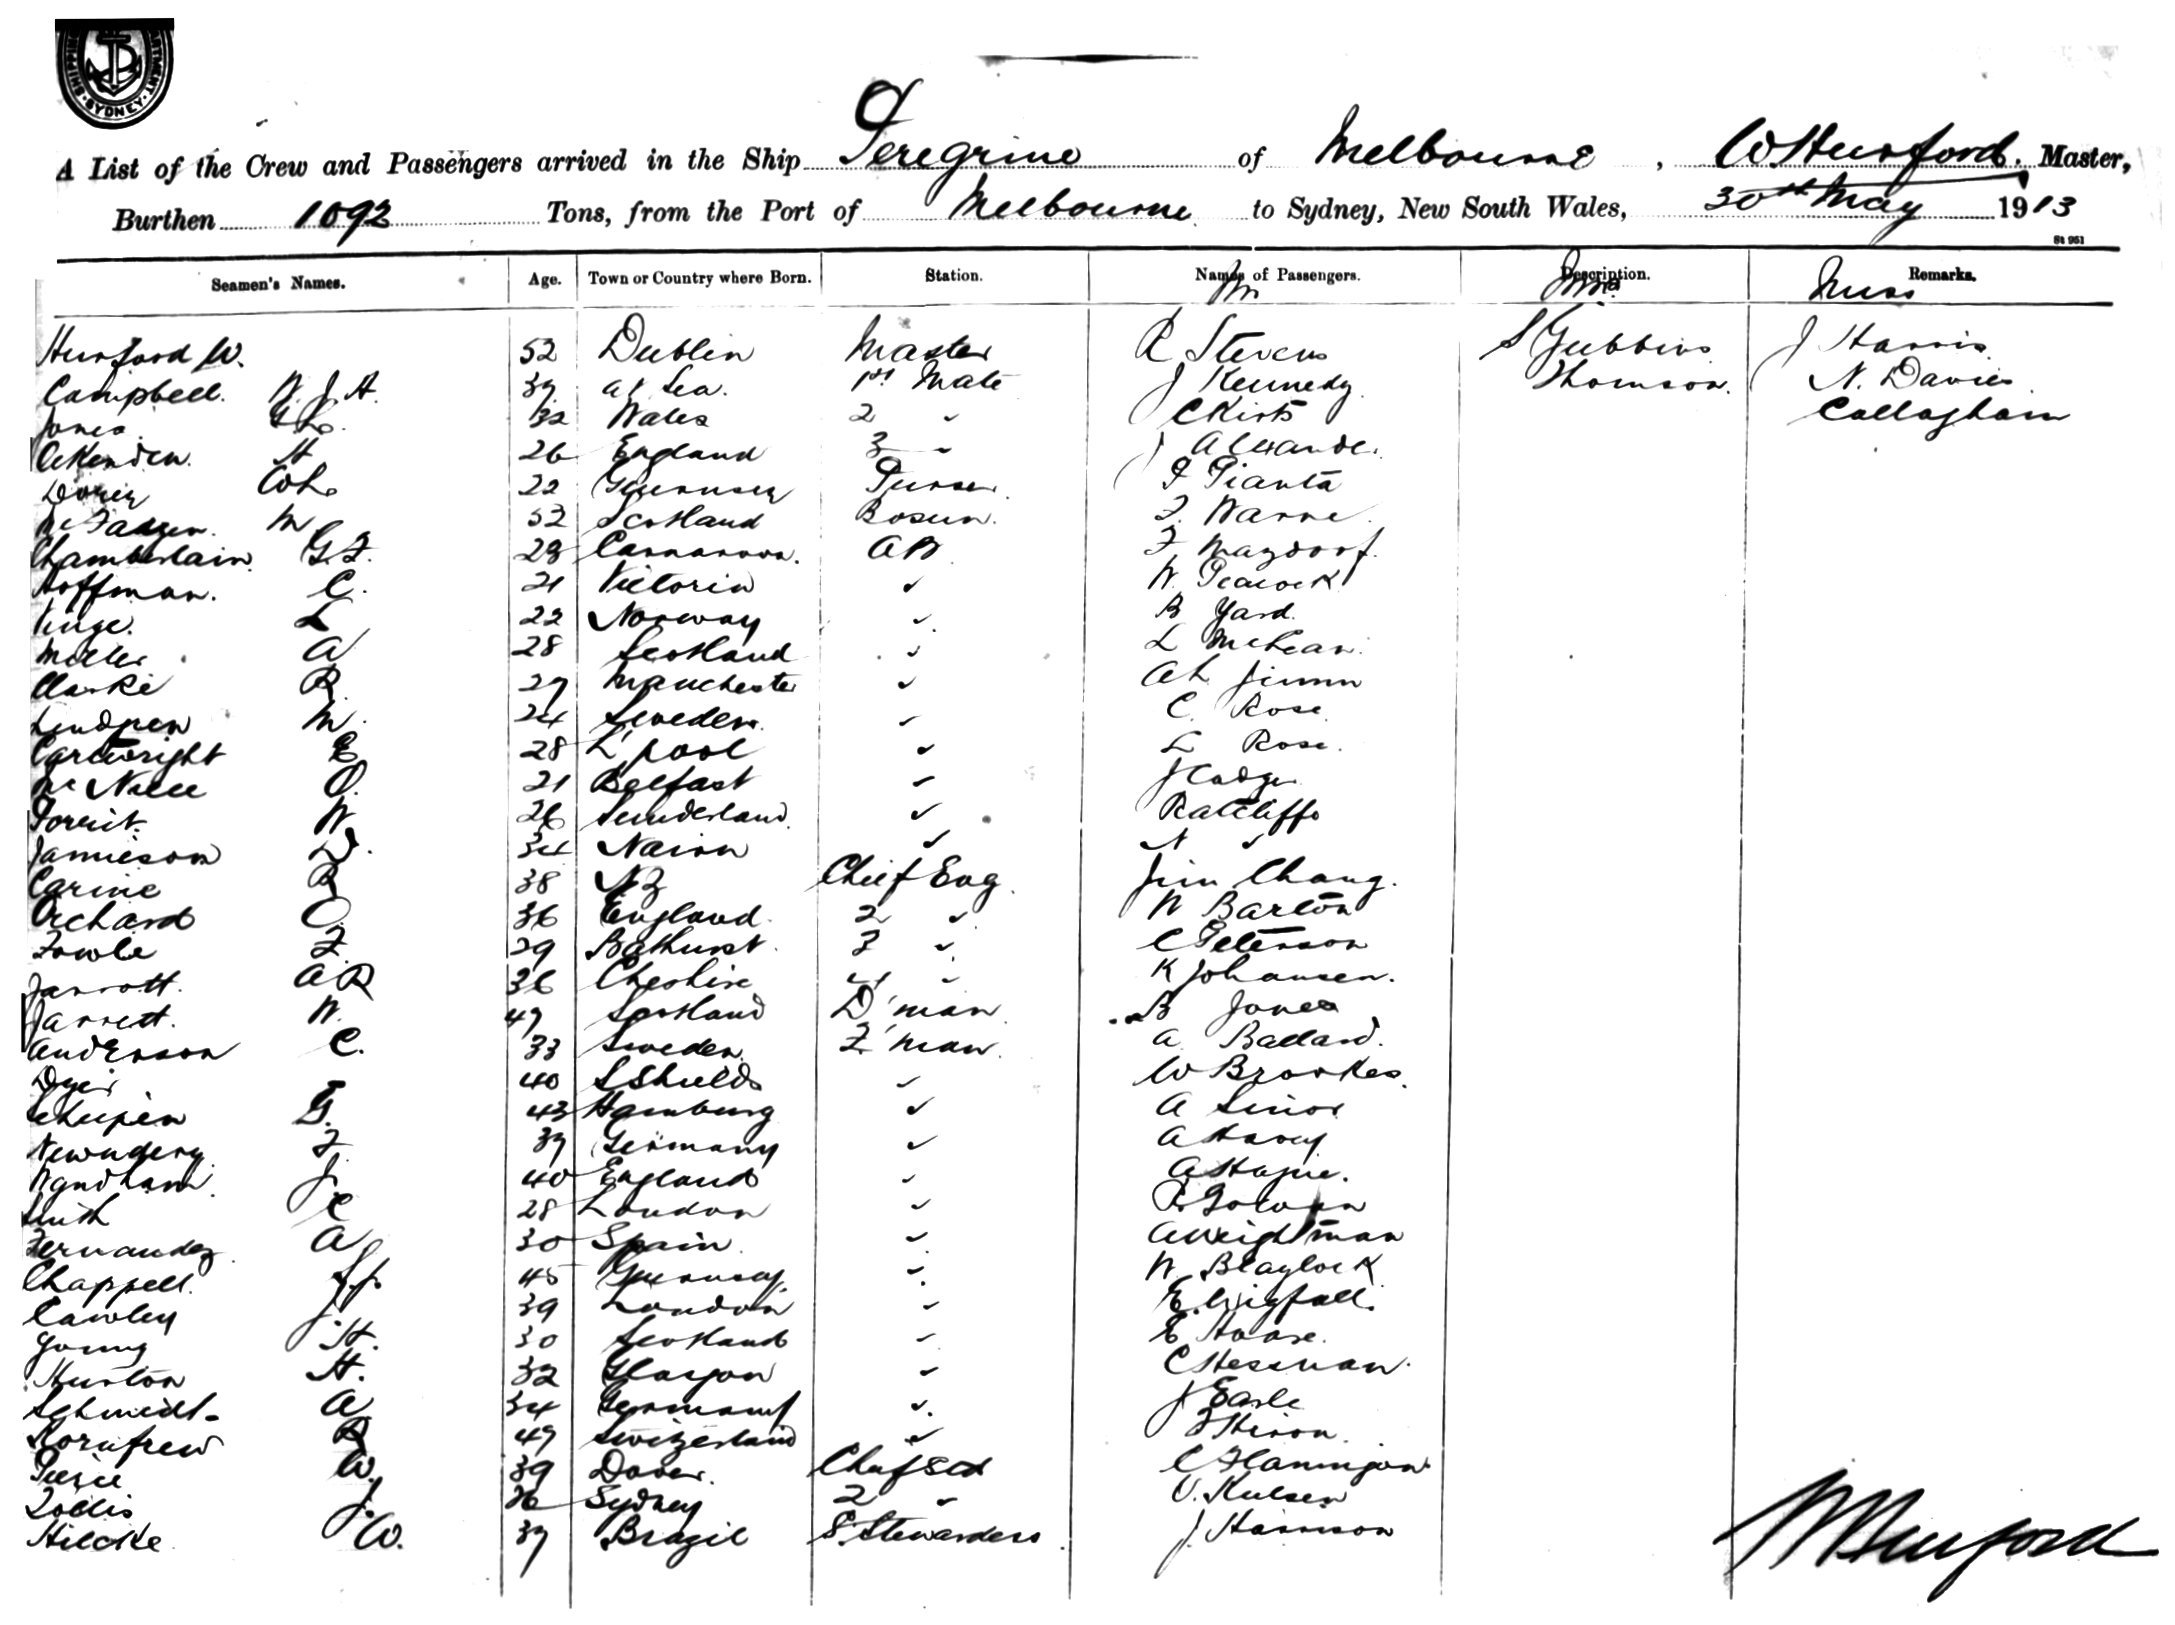 SHIPPING DEPARTMENT SYDNEY
A List of the Crew and Passengers arrived in the Ship Peregrine of Melbourne, W Hurford. Master,
Burthen 1092 Tons, from the Port of Melbourne to Sydney, New South Wales, 30th May 1913
St 961
Seamen's Names. Age. Town or Country where Born. Station. Names of Passengers. Description. Remarks.
Mr Mrs Miss
Hurford W. 52 Dublin Master R Stevens S Gubbins J Harris
Campbell. W. J. A. 39 at Sea. 1st Mate J Kennedy Thomson. N. Davies
Jones 32 Wales 2 " C Kirts Callaghan
Okenden. H 26 England 3 " Alexander
Dorey W L 22 Guernsey Purser. F Pianta
McFadzen. M 52 Scotland Bosun. F. Warne
Chamberlain G. F. 28 Carnarvon. AB F Maydorf.
Hoffman. C. 21 Victoria " W. Peacock
Vinge. L 22 Norway " B Yard.
Miller A 28 Scotland " L McLean.
Clarke R. 27 Manchester " Ah
Lindgren M. 24 Sweden. " C. Rose
Cartwright E 28 L'pool " L Rose.
McNeill O. 21 Belfast " J Cadger
W 26 Sunderland. " Ratcliffe
Jamieson D. 34 Nairn " N "
Carine R 38 NZ Chief Eng. Jim Chang.
Orchard C. 36 England 2 " W Barton
Fowle F. 29 Bathurst. 3 " C Peterson
Jarrott. A R 36 Cheshire 4 " K Johansen.
Jarrett. W. 47 Scotland D'man B Jones
Anderson C. 33 Sweden. F'man. A. Ballard.
Dyer 40 S Shields " W Brookes.
G. 43 Hamburg " A Senior
F. 39 Germany " A Harvey
Wyndham. J. 40 England " A Hague.
Smith C 28 London "
Fernandez A 30 Spain " A Weightman
Chappell. 45 Guernsey. " W. Blaylock
Cawley J. 39 London " E. Wigfall.
Young H. 30 Scotland " E Haase.
Hurton H. 32 Glasgow " C Hessman.
Schmidt. A 34 Germany " J Earle
R 47 Switzerland " Heron.
Peirce W. 39 Dover. Chief Std C Flannigan
J. 26 Sydney 2 "
Hilcke W. 39 Brazil S. Stewardess. J. Harrison
W Hurford